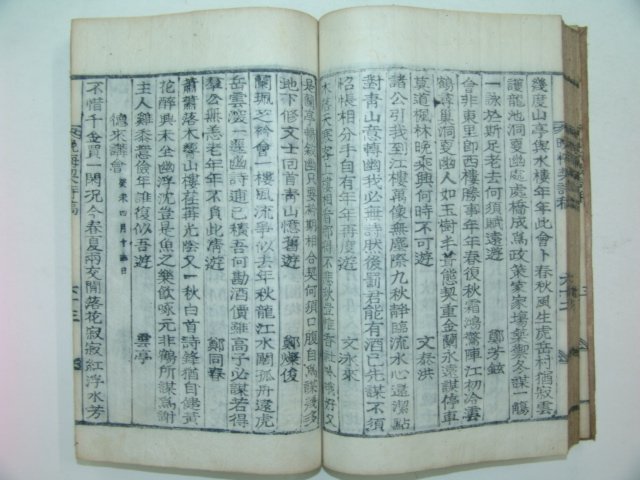 幾度山亭與水樓年年此會卜春秋風生虎岳村猶寂雲
護龍池洞更幽處處橋成爲政策家家場築禦冬謀一觴
一詠於斯足老去何須賦遠遊
鄭芳敏
會非東里卽西樓年年春復秋霜鴻驚陣江初冷雲
鶴尋巢洞更幽人如玉樹半其態契重金蘭永遠謀停車
莫道楓林晩乘興何時不可遊
文泰洪
諸公引我到江樓萬像無塵際九秋靜臨流水心還潔點
對青山意轉幽我必無詩肰後罰君能有酒已先謀不須
怊悵相分手自有年年再度遊
文永來
木落天
是蘭亭
期相合契何須口腹自爲謀後多
地下修文士回首青山憶舊遊
鄭燦俊
蘭珮
會一樓風流爭似去年秋龍江水闊孤舟遠虎
岳雲深一逕幽詩逋已積吾何勘酒價雖高子必謀若得
羣公無恙老年年不負此清遊
鄭同春
蕭蕭落木響山樓荏苒光陰又一秋白首詩鋒猶自健黃
花醉興未全幽浮沈豈是魚之樂飮啄元非鶴所謀爲謝
主人雞黍惹儉年誰復似吾遊
雲亭
德來講會
癸未四月十
日
不惜千金買一閑況今春夏兩交間落花寂寂紅浮水芳